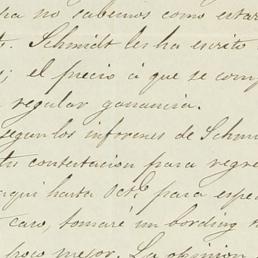 no sabemos como estar
Schmidt les ha escrito
; el precio á que se com
regular ganancia.
segun los informes de Schmi
tu contestacion para regre
aqui hasta Octe para espe
caro, tomaré un bording
poco mejor. La opinion